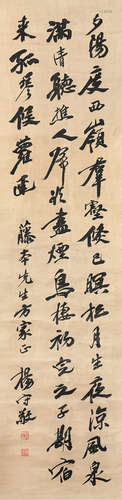 夕陽度西嶺羣壑倏已暝松月生夜涼風泉
滿清聽樵人歸欲盡煙鳥棲初定之子期宿
來孤琴候蘿逕
藤本先生方家正 楊守敬